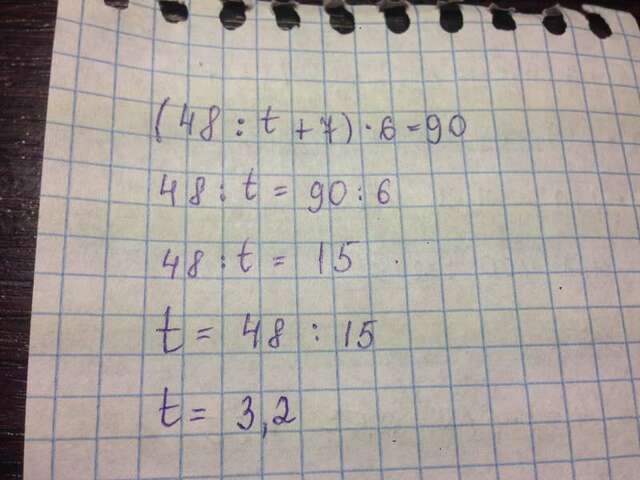 (48 : t + 7) · 6 = 90
48 : t = 90 : 6
48 : t = 15
t = 48 : 15
t = 3,2